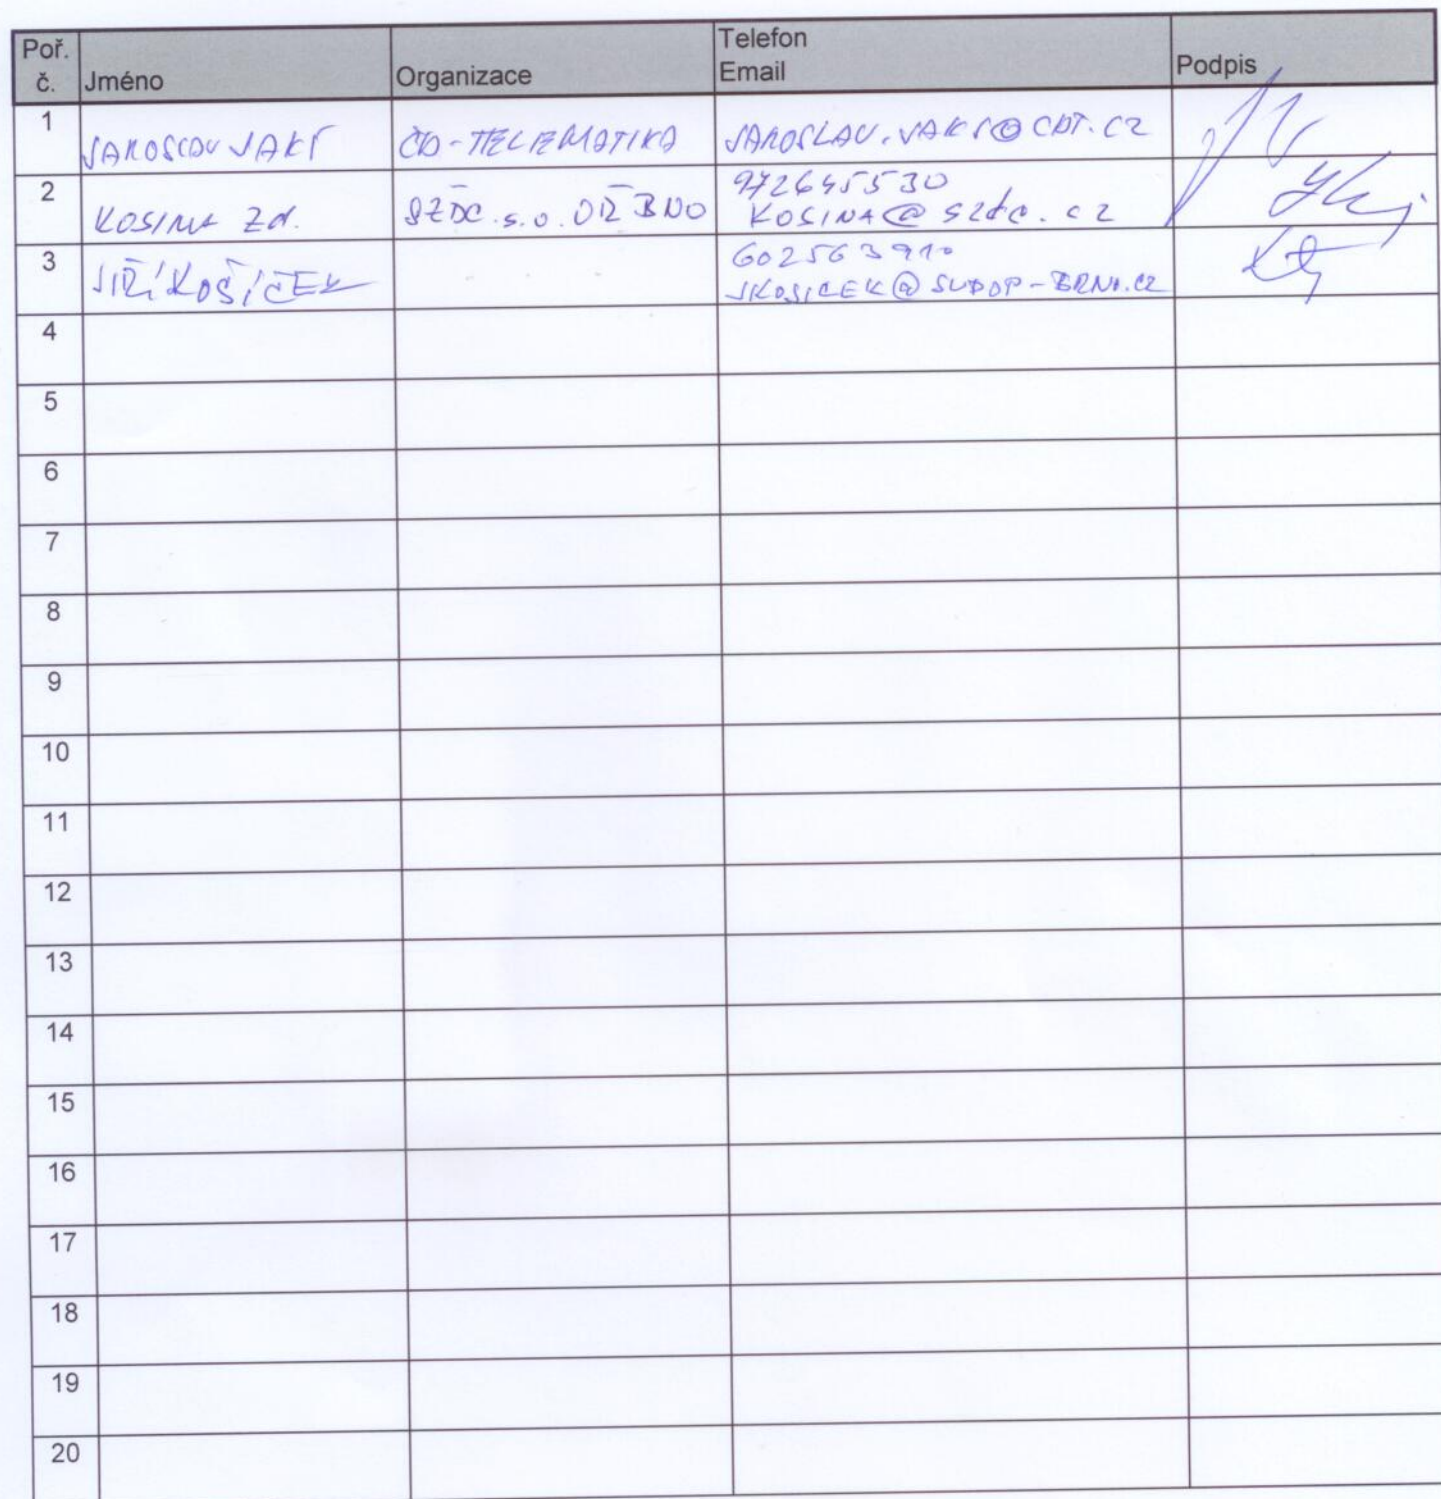 Poř. č. Jméno Organizace Telefon Email Podpis
1 JAROSLAV JAKŠ ČD-TELEMATIKA JAROSLAV.JAKS@CDT.CZ
2 KOSINA Zd. SŽDC s.o. OŘ BNO 972645530
KOSINA@szdc.cz
3 JIŘÍ KOŠÍČEK 602563910
JKOSICEK@SUDOP-BRNO.CZ
4
5
6
7
8
9
10
11
12
13
14
15
16
17
18
19
20